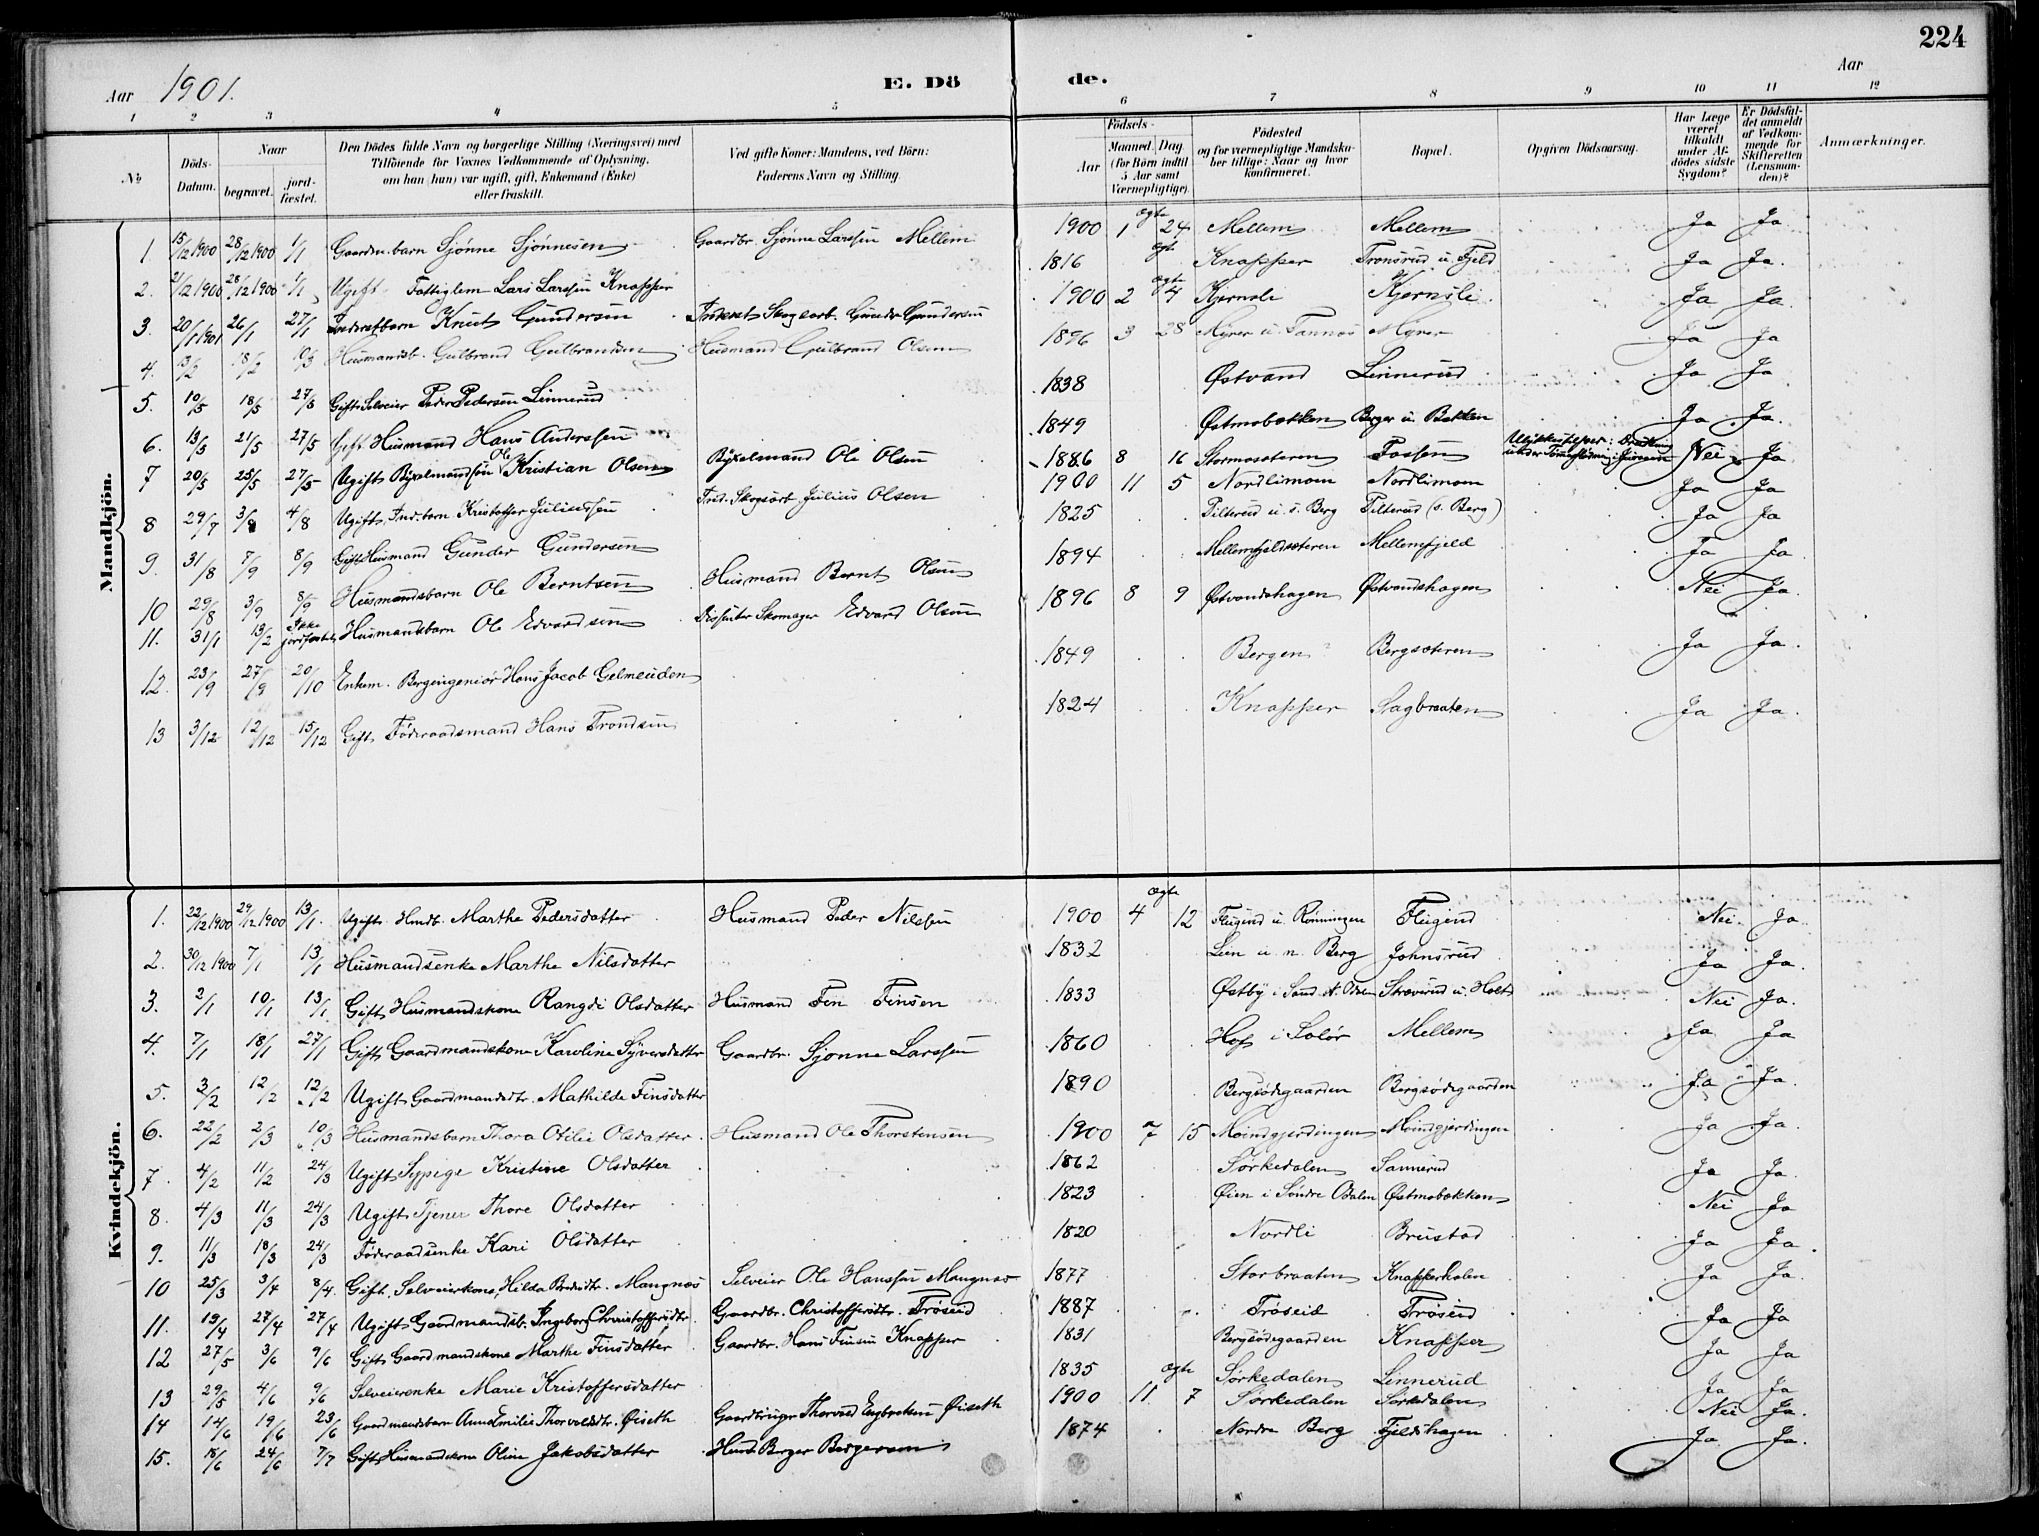 224
Aar 1901. E. Dö de. Aar
1 2 3 4 5 6 7 8 9 10 11 12
№ Döds-Datum. Naar begravet. jord-fæstet. Den Dödes fulde Navn og borgerlige Stilling (Næringsvei) med Tilföiende for Voxnes Vedkommende af Oplysning, om han (hun) var ugift, gift, Enkemand (Enke) eller fraskilt. Ved gifte Koner: Mandens, ved Börn: Faderens Navn og Stilling. Födsels- Aar Maaned. Dag (for Börn indtil 5 Aar samt Værnepligtige). Födested og for værnepligtige Mandskaber tillige: Naar og hvor konfirmeret. Bopæl. Opgiven Dödsaarsag. Har Læge været tilkaldt under Afdödes sidste Sygdom? Er Dödsfaldet anmeldt af Vedkommende for Skifteretten (Lensmanden)? Anmærkninger.
Mandkjön.
1 15/12 1900 28/12 1900 1/1 Gaardm.barn Sjönne Sjönnesen Gaardbr. Sjönne Larssen Mellem 1900 1 ægte 24 Mellem Mellem Ja Ja
2. 21/12 1900 28/12 1900 1/1 Ugift Fattiglem Lars Larssen Knapper 1816 ægte Knapper Tronsrud u. Fjeld Ja Ja.
3. 20/1 1901 26/1 27/1 Inderstbarn Knut Gundersen Inderst Skogsarb. Gunder Gundersen 1900 2 ægte 4 Kjernsli Kjernsli Ja Ja
4. 13/2 18/2 10/3 Husmandsb. Gulbrand Gulbrandsen Husmand Gulbrand Olsen 1896 3 28 Myrer u. Tannæs Myrer Ja Ja
5. 10/5 18/5 27/5 Gift Selveier Peder Pedersen Linnerud 1838 Østvand Linnerud Ja Ja
6. 13/5 21/5 27/5 Gift Husmand Hans Anderssen 1849 Østmobækken Berger u. Bakken Ja Ja.
7 20/5 25/5 27/5 Ugift Bÿxelmandssön Ole Kristian Olsen Bÿxelmand Ole Olsen 1886 8 16 Stormosæteren Fossen Ulykkestilfælde: Drukning under Tømmerfløtning Nei Ja
8 29/7 3/8 4/8 Ugift Ind.barn Kristoffer Juliussen Ind. Skogsarb. Julius Olsen 1900 11 5 Nordlimoen Nordlimoen Ja Ja
9. 31/8 7/9 8/9 Gift Husmand Gunder Gundersen 1825 Tilterud u. s. Berg Tilterud (s. Berg) Ja Ja
10 29/8 3/9 8/9 Husmandsbarn Ole Berntsen Husmand Bernt Olsen 1894 Mellemfjeldsæteren Mellemfjeld Ja Ja
11. 31/1 13/2 Ikke jordfæstet Husmandsbarn Ole Edvardsen Dissenter Skomager Edvard Olsen 1896 8 9 Østvandshagen Østvandshagen Nei Ja
12. 23/9 27/9 20/10 Enkem. Bergingeniør Hans Jacob Gelmeuden 1849 Bergen Bergsæteren Ja Ja.
13 3/12 12/12 15/12 Gift Föderaadsmand Hans Trondsen 1824 Knapper Sagbraaten Ja Ja.
Kvindekjön.
1. 22/12 1900 29/12 1900 13/1. Ugift Hmdb. Marthe Pedersdatter Husmand Peder Nilssen 1900 4 ægte 12 Flugind u. Rönningen Flugind Nei. Ja
2. 30/12 1900 7/1 13/1 Husmandsenke Marthe Nilsdatter 1832 Lien u. n. Berg Johnsrud Ja Ja.
3. 2/1 10/1 13/1 Gift Husmandskone Rangdi Olsdatter Husmand Fin Finsen 1833 Østby i Sand N. Odalen Strøverud u. Holt Nei Ja.
4. 7/1 18/1 27/1 Gift Gaardmandskone Karoline Syversdatter Gaardbr. Sjonne Larssen 1860 Hof i Solør Mellem Ja Ja
5. 3/2 12/2 12/2 Ugift Gaardmandsdtr. Mathilde Finsdatter 1890 Bergsödegaarden Bergsödegaarden Ja Ja.
6. 22/2 2/3 10/3 Husmandsbarn Thora Otilie Olsdatter Husmand Ole Thorstensen 1900 7 15 Moindgjerdingen Moindgjerdingen Ja Ja.
7. 4/2 11/2 24/3 Ugift Sypige Kristine Olsdatter 1862 Sørkedalen Sannerud Ja Ja.
8. 4/3 11/3 24/3 Ugift Tjener Thore Olsdatter 1823 Øien i Söndre Odalen Østmobækken Nei Ja
9. 11/3 18/3 24/3 Föderaadsenke Kari Olsdatter 1820 Nordli Brustad Ja Ja.
10 25/3 3/4 8/4. Gift. Selveierkone, Hilda Mangnæs Selveier Ole Hanssen Mangnæs 1877 Storbraaten Knapperholen Ja Ja.
11. 19/4 27/4 27/4 Ugift Gaardmandsb. Ingeborg Christoffersdtr. Gaardbr. Christoffersdtr. Tröseid 1887 Tröseid Tröseid Ja Ja
12 27/5 3/6 9/6 Gift Gaardmandskone Marthe Finsdatter Gaardbr. Hans Finsen Knapper 1831 Bergsödegaarden Knapper Ja Ja
13 29/5 4/6 9/6 Selveierenke Marie Kristoffersdatter 1835 Sørkedalen Linnerud Ja Ja
14 14/6 19/6 23/6 Gaardmandsbarn Anna Emilie Thorvaldsdtr. Øiseth Gaardbruger Thorvald Engbretsen Øiseth 1900 11 ægte 7 Sørkedalen Sørkedalen Nei Ja.
15. 18/6 24/6 7/7 Gift Husmandskone Oline Jakobsdatter Husm. Berger Bergersen 1874 Nordre Berg Fjeldshagen Ja Ja.